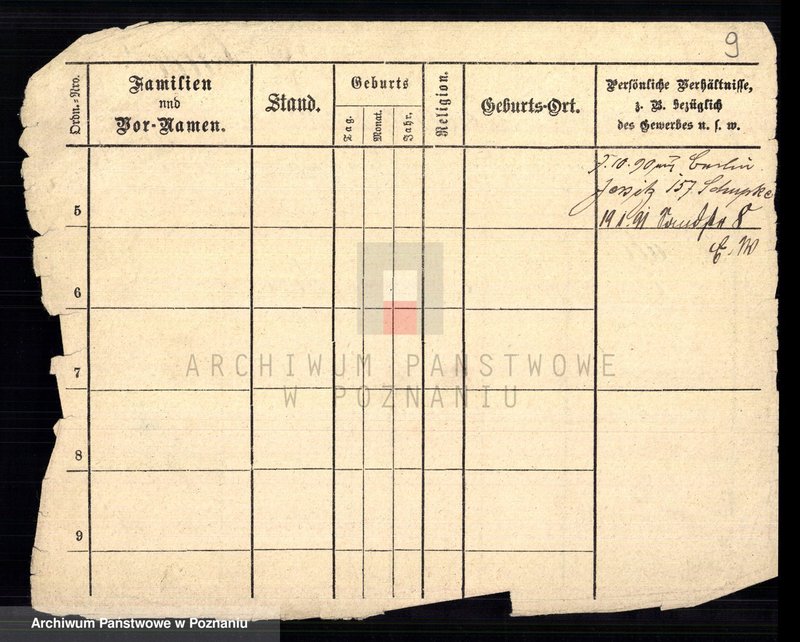 9
Ordn.-Nro.
Familien
und
Vor-Namen.
Stand.
Geburts
Tag.
Monat.
Jahr.
Religion.
Geburts-Ort.
Persönliche Verhältnisse,
z. B. bezüglich
des Gewerbes u. s. w.
10. 90 Berlin
Jersitz 157.
5
19 1. 91 8
6
ARCHIWUM PAŃSTWOWE
W POZNANIU
7
8
9
Archiwum Państwowe w Poznaniu